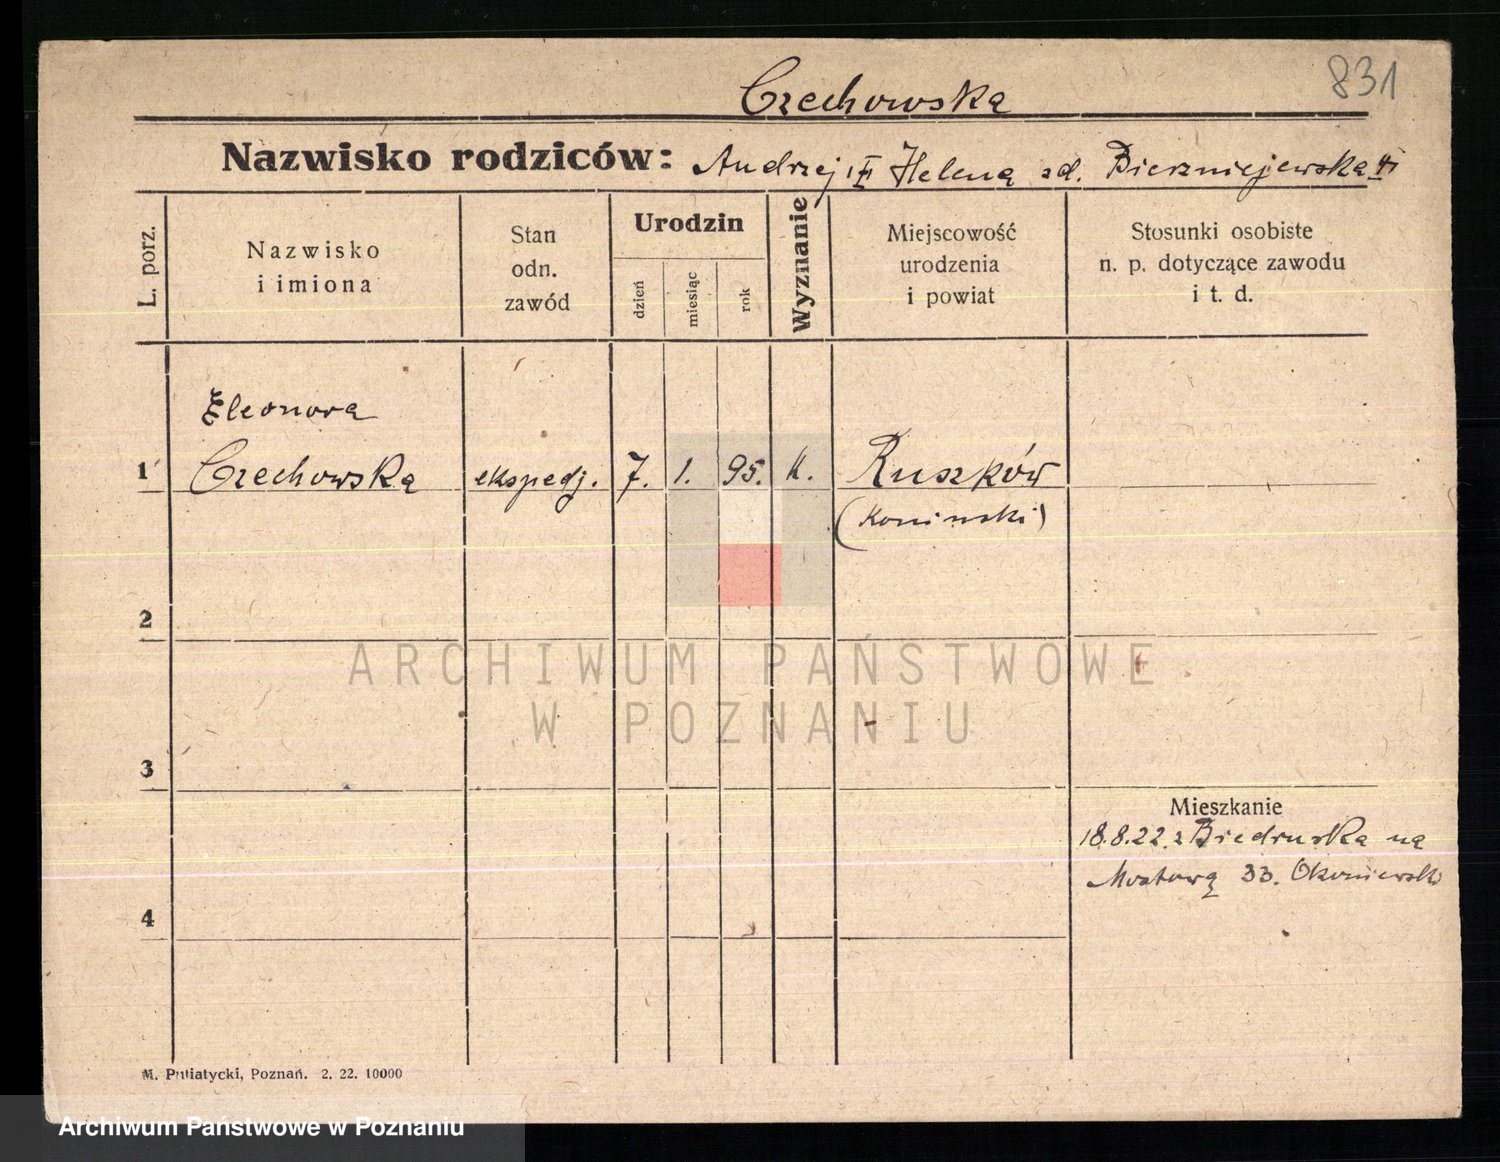 831
Czechowska
Nazwisko rodziców: Andrzej i Helena zd. Bierzniejewska
L. porz.
Nazwisko
i imiona
Stan
odn.
zawód
Urodzin
dzień
miesiąc
rok
Wyznanie
Miejscowość
urodzenia
i powiat
Stosunki osobiste
n. p. dotyczące zawodu
i t. d.
Eleonora
1 Czechowska ekspedj. 7. 1. 95. k. Ruszków
(Koninski)
2
ARCHIWUM PAŃSTWOWE
W POZNANIU
3
Mieszkanie
18.8.22. z Biedruska na
Mostową 33. Okoniewski
4
M. Putiatycki, Poznań. 2. 22. 10000
Archiwum Państwowe w Poznaniu